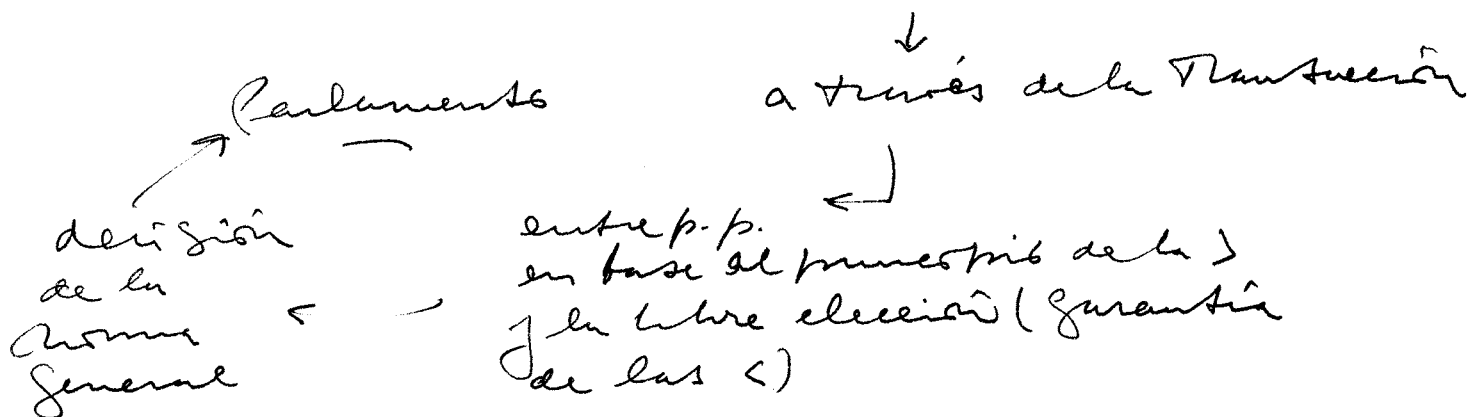 Parlamento
a través de la Transacción
decisión
de la
norma
general
entre p.p.
en base al principio de la >
y la libre elección (garantía
de las <)